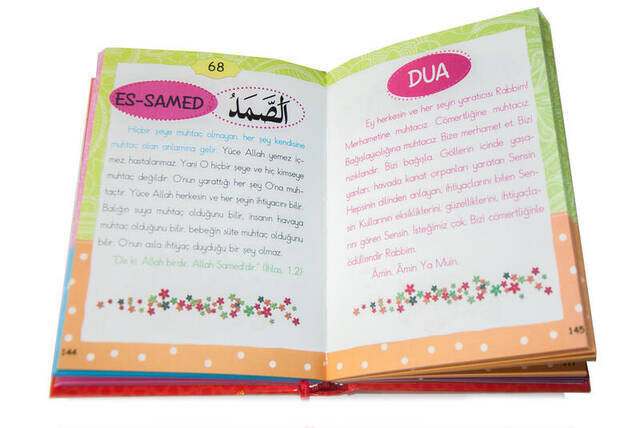 68
ES-SAMED
اَلصَّمَدُ
Hiçbir şeye muhtaç olmayan, her şey kendisine
muhtaç olan anlamına gelir. Yüce Allah yemez iç-
mez, hastalanmaz. Yani O hiçbir şeye ve hiç kimseye
muhtaç değildir. O'nun yarattığı her şey O'na muh-
taçtır. Yüce Allah herkesin ve her şeyin ihtiyacını bilir.
Balığın suya muhtaç olduğunu bilir, insanın havaya
muhtaç olduğunu bilir, bebeğin süte muhtaç olduğunu
bilir. O'nun asla ihtiyaç duyduğu bir şey olmaz.
"De ki: Allah birdir. Allah Samed'dir." (İhlas, 1,2)
144
DUA
Ey herkesin ve her şeyin yaratıcısı Rabbim!
Merhametine muhtacız. Cömertliğine muhtacız.
Bağışlayıcılığına muhtacız. Bize merhamet et. Bizi
rızıklandır. Bizi bağışla. Göllerin içinde yaşa-
yanları, havada kanat çırpanları yaratan Sensin.
Hepsinin dilinden anlayan, ihtiyaçlarını bilen Sen-
sin. Kullarının eksikliklerini, güzelliklerini, ihtiyaçla-
rını gören Sensin. İsteğimiz çok. Bizi cömertliğinle
ödüllendir Rabbim.
Âmin, Âmin Ya Muîn.
145